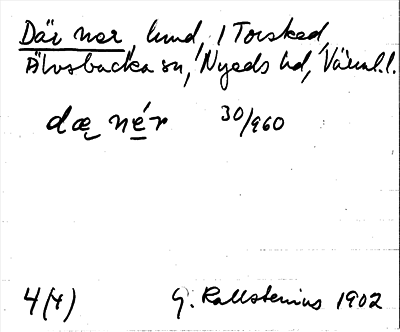 Där ner, lund, 1 Torsked,
Älvsbacka sn, Nyeds hd, Värml.l.
dæ nér 30/960
4(4) G. Kallstenius 1902